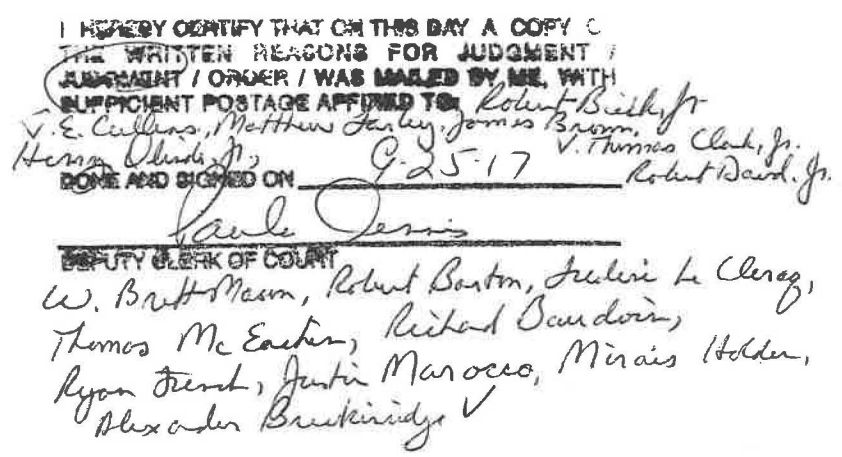 I HEREBY CERTIFY THAT ON THIS DAY A COPY O
THE WRITTEN REASONS FOR JUDGMENT /
JUDGMENT / ORDER / WAS MAILED BY ME, WITH
SUFFICIENT POSTAGE AFFIXED TO: Robert
V.E. Cullens, Matthew Farley, James Brown,
V. Thomas Clark, Jr.
Henry Olinde, Jr.,
DONE AND SIGNED ON 9-25-17 Robert Jr.
Dennis
DEPUTY CLERK OF COURT
W. Brett Mason, Robert Barton, Frederic Le Clercq,
Thomas McEachin, Richard Baudoin,
Ryan French, Justin Marocco, Mirais Holden,
Alexander Breckinridge V